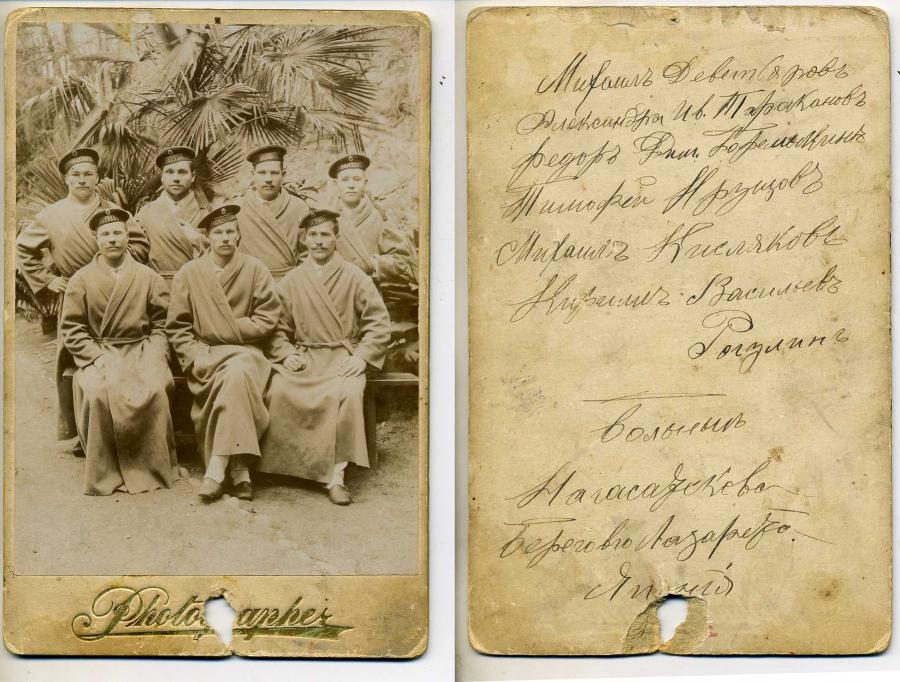 Photographer
Михаилъ Деветьяровъ
Александра Ив. Тараканова
Федоръ Дим. Корелышкинъ
Тимофей Друщовъ
Михаилъ Кисляковъ
Кирилъ Васильевъ
Рогулинъ
больныхъ
Нагасакскова
Берегово Лазарета
Японія